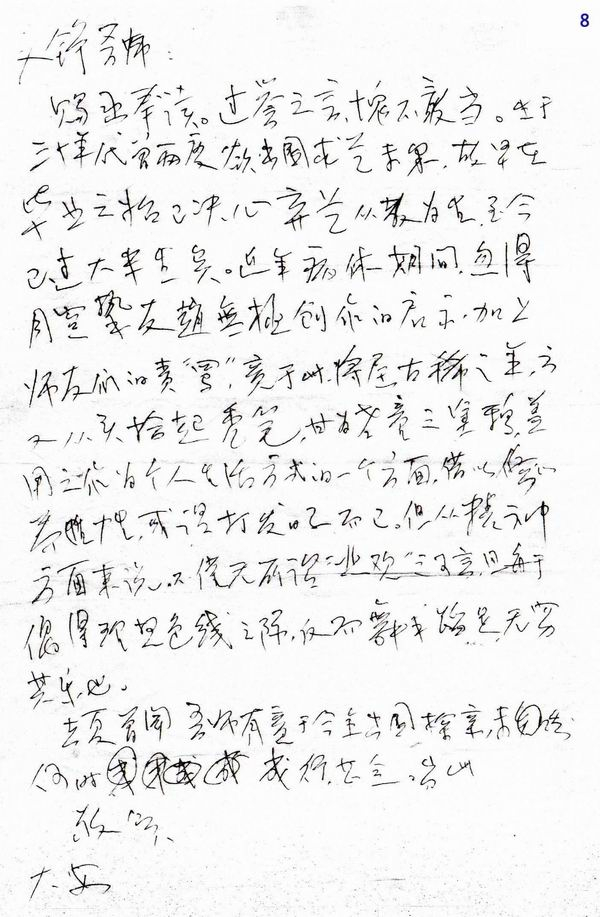 8
大铮吾师：
赐函奉读。过誉之言，愧不敢当。生于
三十年代曾两度欲出国求艺未果，故早在
毕业之始已决心弃艺从教为生，至今
已过大半生矣。近年病休期间，忽得
同窗挚友赵無極创作的启示，加上
师友们的责“骂”，竟于此将届古稀之年，方
又从头拾起秃笔，甘为，盖
用之作为个人生活方式的一个方面，借以修心
养性，或谓打发日子而已。但从精神
方面来说，不仅无所谓“悲欢”之可言，且每于
偶得理想色线之际，反而舞手蹈足，无穷
其乐也。
去夏曾闻 吾师有意于今年出国探亲，未知能
何时成行，甚念。耑此
敬颂
大安